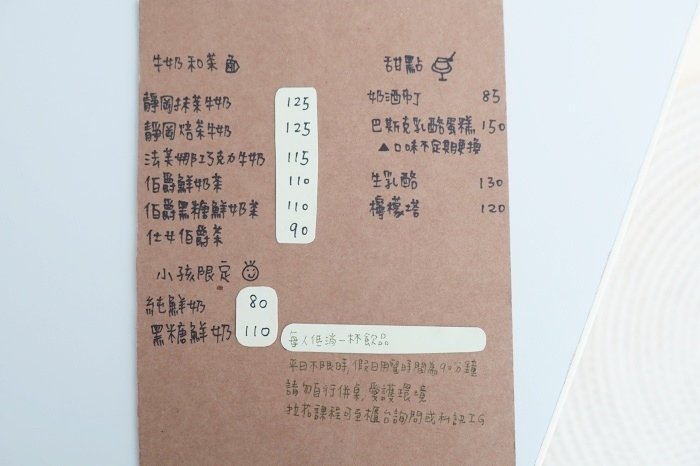 牛奶和茶
靜岡抹茶牛奶 125
靜岡焙茶牛奶 125
法芙娜巧克力牛奶 115
伯爵鮮奶茶 110
伯爵黑糖鮮奶茶 110
仕女伯爵茶 90
小孩限定
純鮮奶 80
黑糖鮮奶 110
甜點
奶酒布丁 85
巴斯克乳酪蛋糕 150
▲口味不定期更換
生乳酪 130
檸檬塔 120
每人低消一杯飲品
平日不限時,假日用餐時間為90分鐘
請勿自行併桌,愛護環境
拉花課程可至櫃台詢問或私訊IG